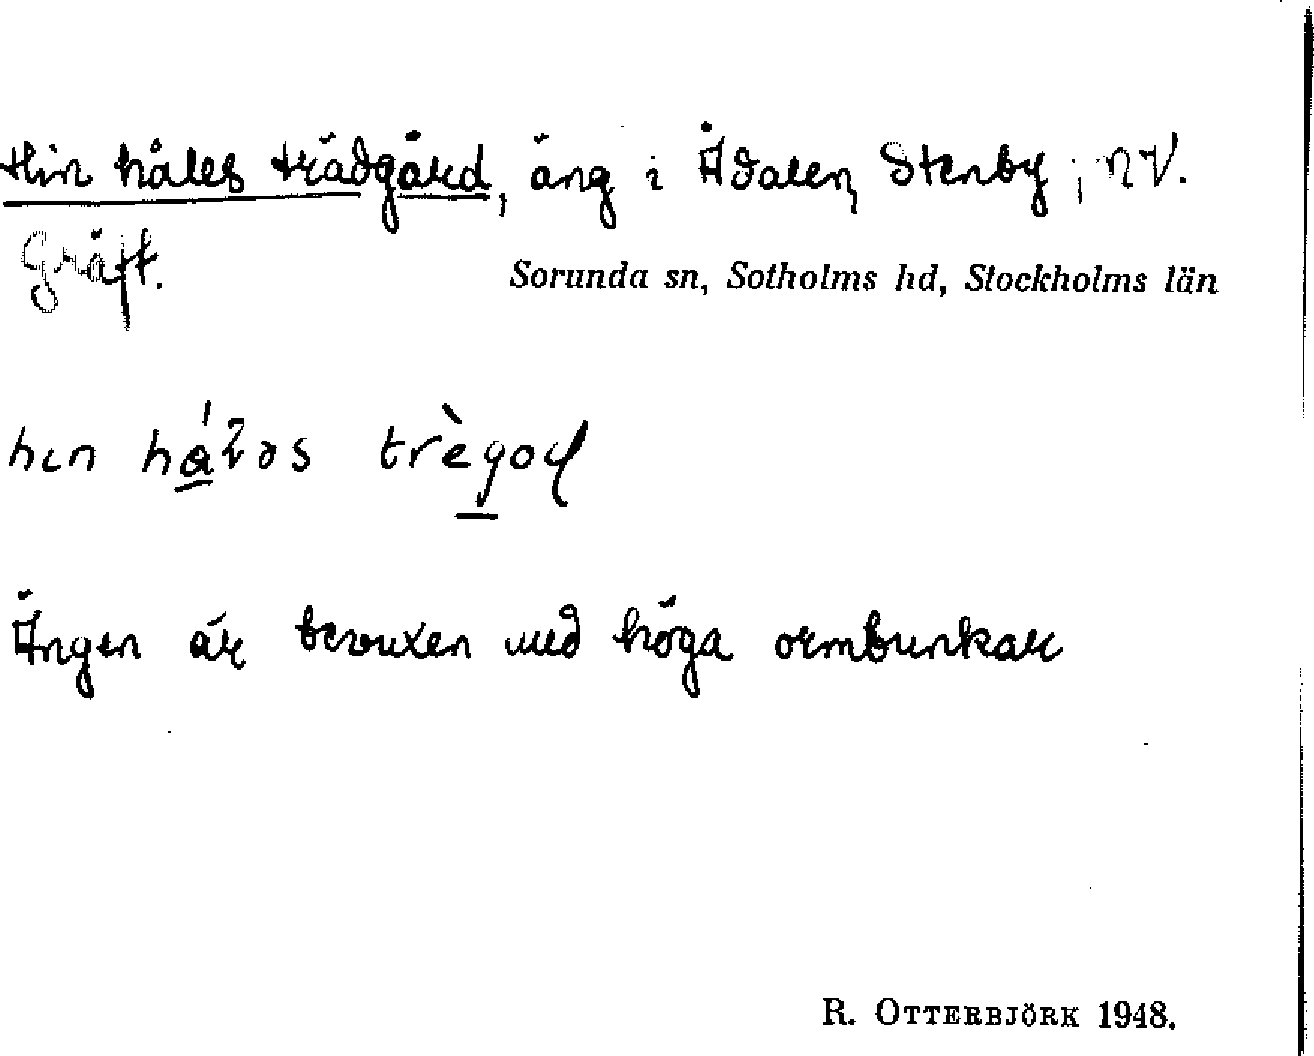 Hin håles trädgård, äng i Ådalen, Stenby; NV.
Gräft.
Sorunda sn, Sotholms hd, Stockholms län
hın há̱ləs trègoɖ
Ängen är bevuxen med höga ormbunkar
R. OTTERBJÖRK 1948.